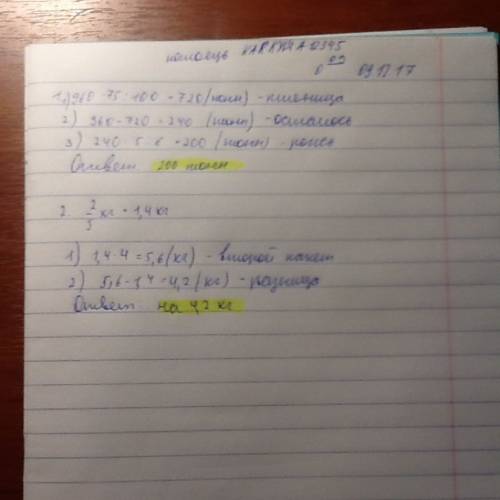 помощь KARKYHA12345
09 09.12.17
1. 1) 960·75:100=720 (тонн) - пшеница
2) 960-720=240 (тонн) - осталось
3) 240·5:6=200 (тонн) - рожь
Ответ: 200 тонн
2. 7/5 кг = 1,4 кг
1) 1,4·4=5,6 (кг) - второй пакет
2) 5,6-1,4=4,2 (кг) - разница
Ответ: на 4,2 кг